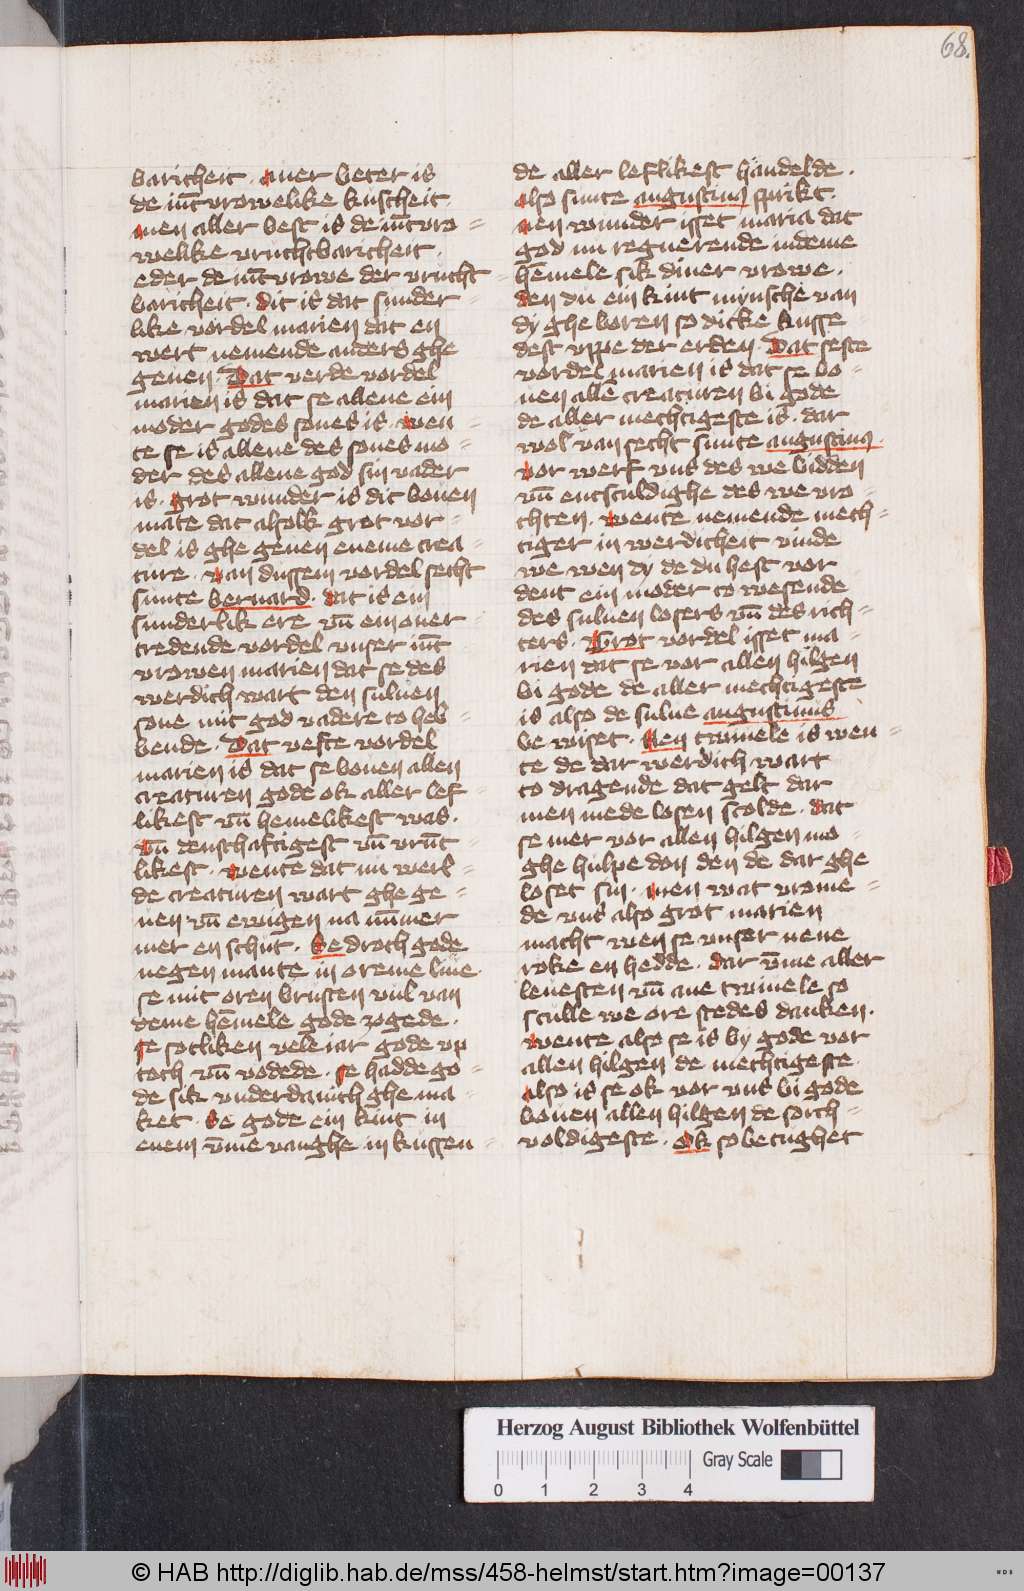 68.
baricheit . auer beter is
de iūcvrowelike kuscheit.
Men aller best is de iūcvro=
welike vruchtbaricheit .
eder de iūcvrowe der vrucht=
baricheit . Dit is dat sunder=
like vordel marien dat en
wert nemende anders ghe
geuen . Dat verde vordel
marien is dat se allene ein
moder godes sones is . wen=
te se is allene des sones mo=
der des allene god sin vader
is . grot wunder is dit bouen
mate dat alsolk grot vor=
del is ghe geuen eneme crea=
ture . van dussem vordel secht
sunte bernard . dat is ein
sunderlik ere vn̄ ein ouer=
tredende vordel vnser iūc
vrowen marien dat se des
werdich wart den suluen
sone mit god vadere to heb=
bende . Dat vefte vordel
marien is dat se bouen allen
creaturen gode ok aller lef=
likest vn̄ hemelikest was.
vn̄ denschaftigest vn̄ vrūt=
likest . wente dat nu werl=
de creaturen wart ghe ge=
uen vn̄ ewigen na nūmer
mer en schut . Se droch gode
negen mante in oreme liue
se mit oren brusten vul van
deme hēmele gode zogede .
se sotliken vele iar gode vp
toch vn̄ vodede . se hadde go=
de sik vnderdanich ghe ma=
ket . Se gode ein kint in
enem vmme vanghe in kussen=
de aller leflikest handelde .
Also sunte augustinus sprikt.
Nen wunder isset maria dat
god nu regnerende in deme
hēmele sik diner vrowe .
den du ein kint mynsche van
dy ghe boren so dicke kusse=
dest vppe der erden . Dat seste
vordel marien is dat se bo=
uen allē creaturen bi gode
de aller mechtigeste is . dar
wol van secht sunte augustinus.
vor werf vns des we bidden
vn̄ entsculdighe des we vro=
chten . wente nemende mech=
tiger in werdicheit vinde
we wen dy de du hest vor=
dent ein moder to wesende
des suluen losers vn̄ des rich=
ters . Grot vordel isset ma=
rien dat se vor allen hilgen
bi gode de aller mechtigeste
is also de sulue augustinus
be wiset . Nen twiuele is wen=
te de dar werdich wart
to dragende dat gelt dar
men mede losen scolde . dat
se mer vor allen hilgen mo=
ghe hulpe don den de dar ghe
loset sin . men wat vrome=
de vns also grot marien
macht wen se vnser nene
roke en hedde . dar v̄me aller
leuesten vn̄ ane twiuele so
sculle we ore stedes danken.
wente also se is by gode vor
allen hilgen de mechtigeste .
also is se ok vor vns bi gode
bouen allen hilgen de sorch=
voldigeste . Ok so betughet
Herzog August Bibliothek Wolfenbüttel
Gray Scale
0 1 2 3 4
© HAB http://diglib.hab.de/mss/458-helmst/start.htm?image=00137